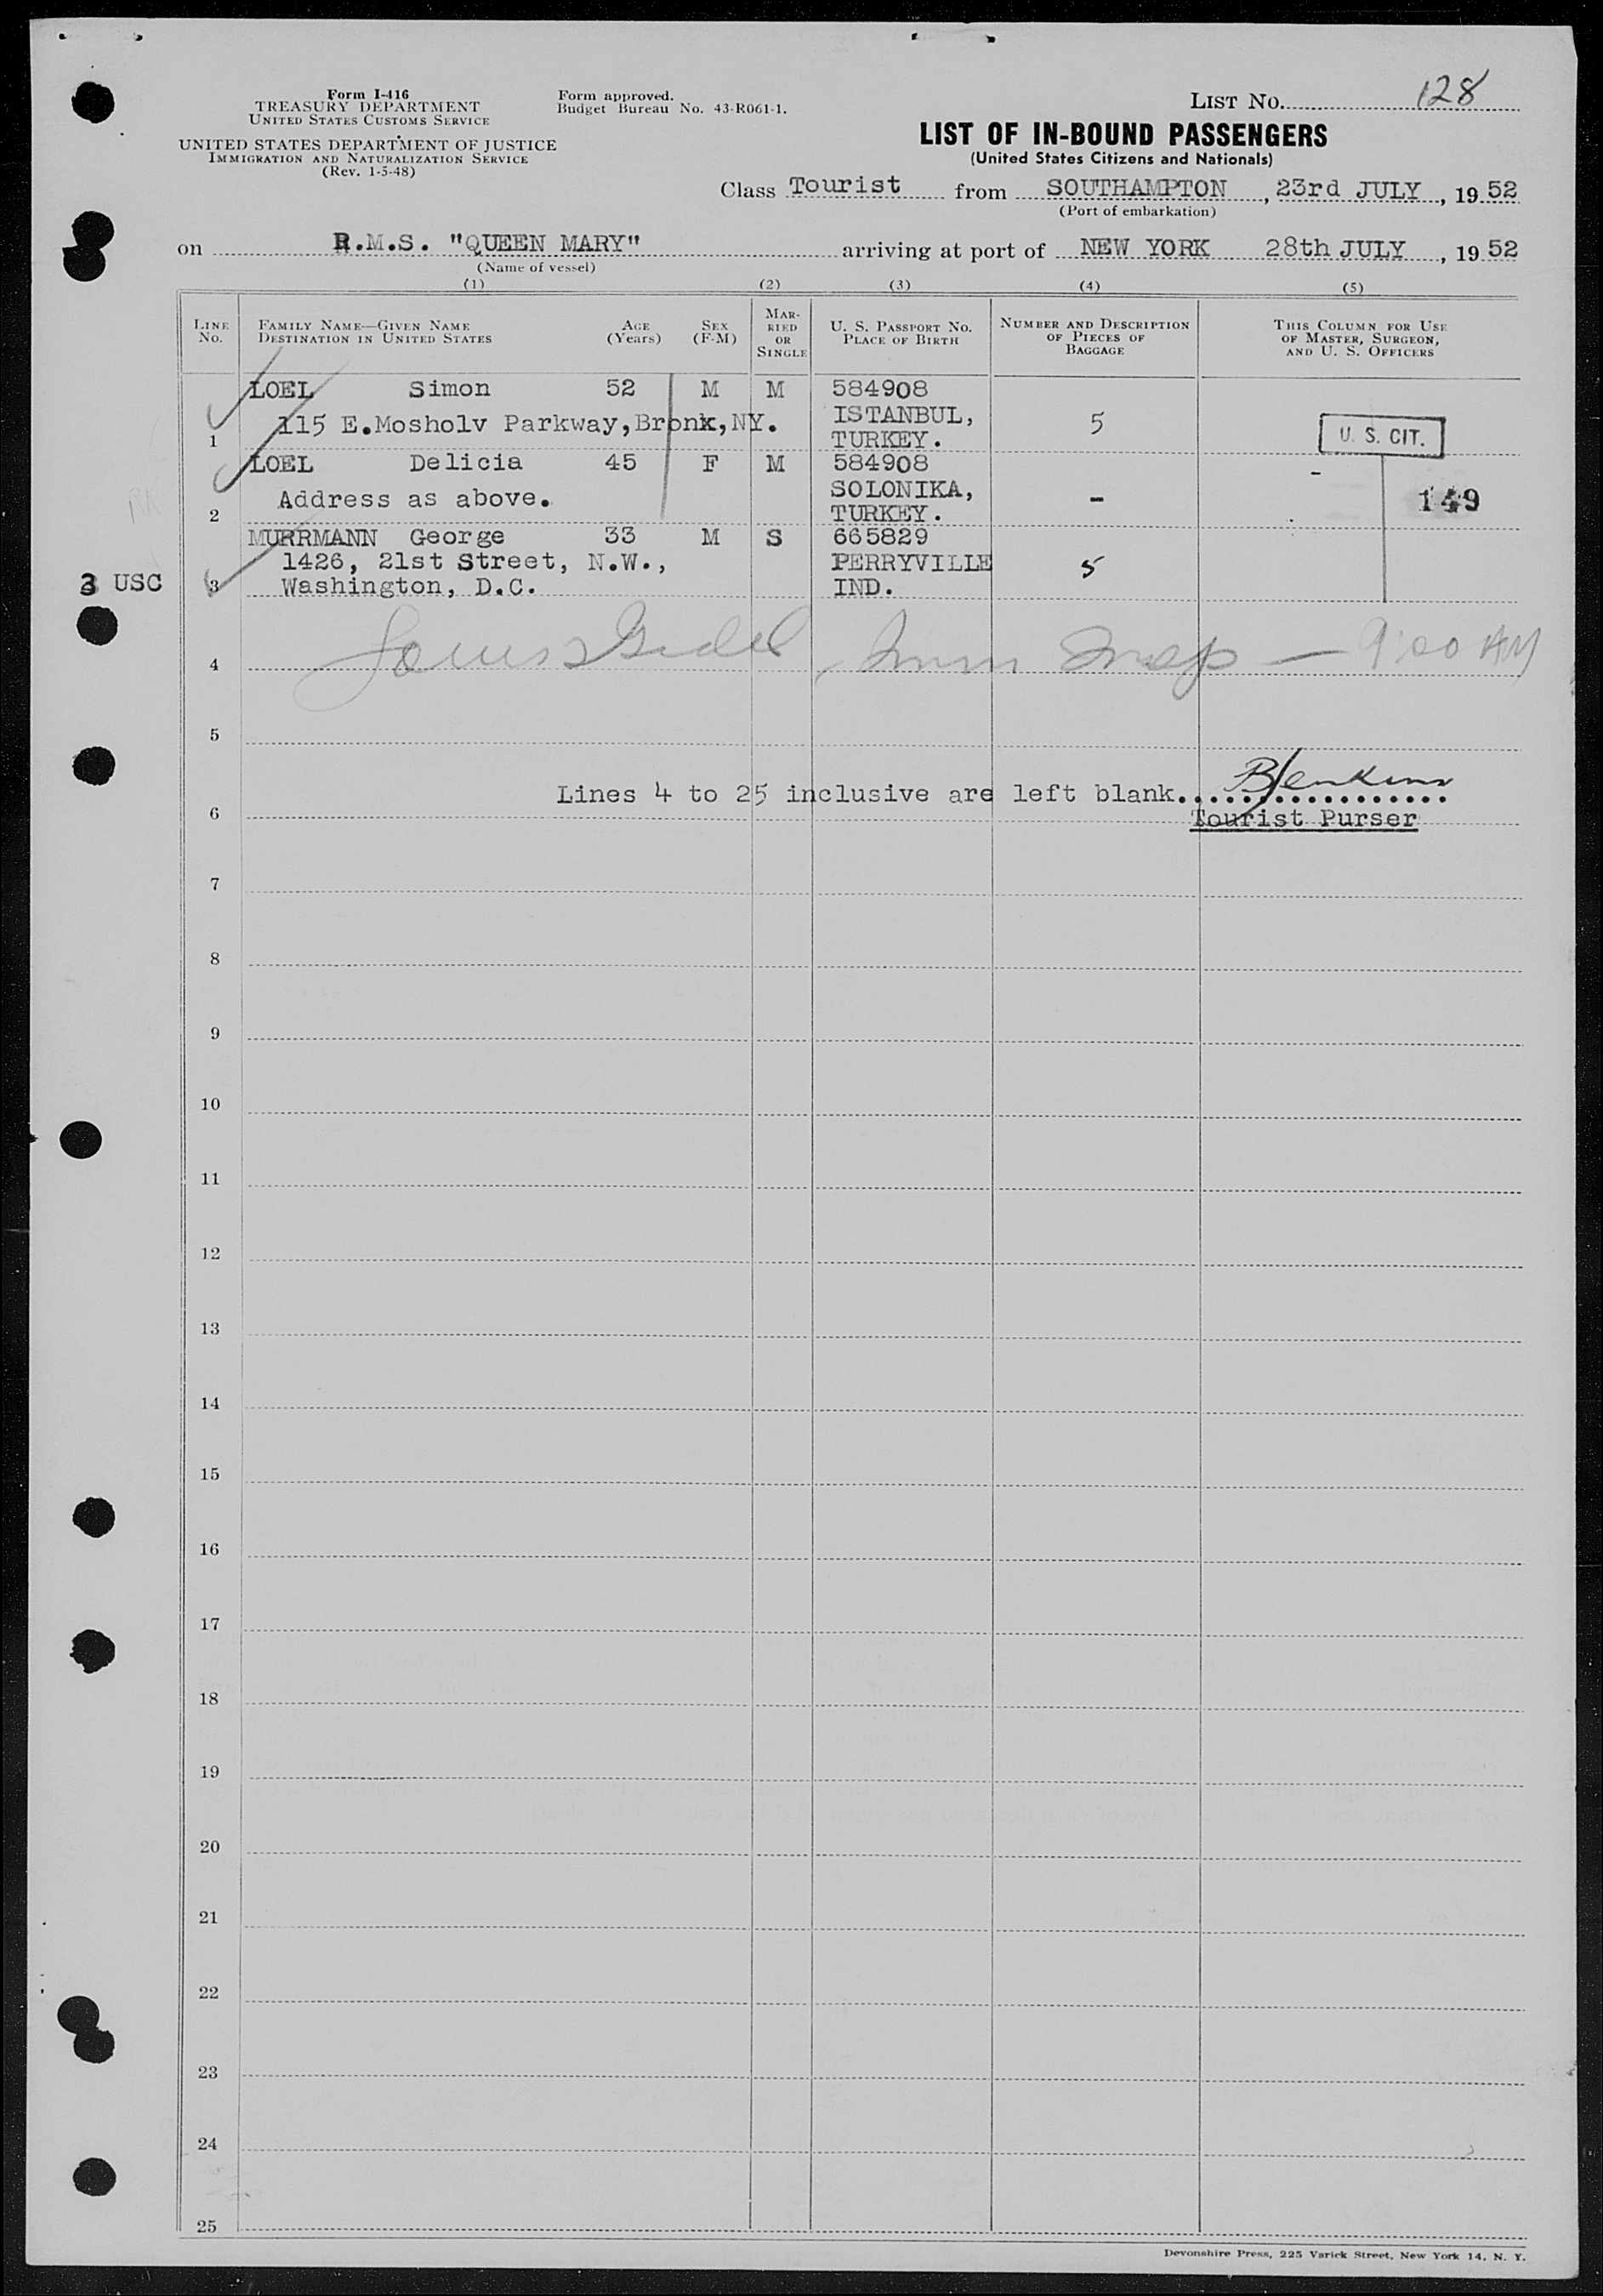 Form I-416
TREASURY DEPARTMENT
UNITED STATES CUSTOMS SERVICE
UNITED STATES DEPARTMENT OF JUSTICE
IMMIGRATION AND NATURALIZATION SERVICE
(Rev. 1-5-48)
Form approved.
Budget Bureau No. 43-R061-1.
LIST No. 128
LIST OF IN-BOUND PASSENGERS
(United States Citizens and Nationals)
Class Tourist from SOUTHAMPTON, 23rd JULY, 1952
(Port of embarkation)
on R.M.S. "QUEEN MARY" arriving at port of NEW YORK 28th JULY, 1952
(Name of vessel)
(1) (2) (3) (4) (5)
LINE No.
FAMILY NAME—GIVEN NAME
DESTINATION IN UNITED STATES
AGE (Years)
SEX (F-M)
MARRIED OR SINGLE
U. S. PASSPORT No.
PLACE OF BIRTH
NUMBER AND DESCRIPTION OF PIECES OF BAGGAGE
THIS COLUMN FOR USE OF MASTER, SURGEON, AND U. S. OFFICERS
LOEL Simon 52 M M 584908
1 115 E.Mosholv Parkway,Bronk,NY. ISTANBUL, TURKEY. 5 U. S. CIT.
LOEL Delicia 45 F M 584908
2 Address as above. SOLONIKA, TURKEY. - - 149
MURRMANN George 33 M S 665829
1426, 21st Street, N.W., PERRYVILLE 5
3 USC 3 Washington, D.C. IND.
4 Imm Insp — 9:00 AM
5
Lines 4 to 25 inclusive are left blank. BJenkins
6 Tourist Purser
7
8
9
10
11
12
13
14
15
16
17
18
19
20
21
22
23
24
25
Devonshire Press, 225 Varick Street, New York 14, N. Y.